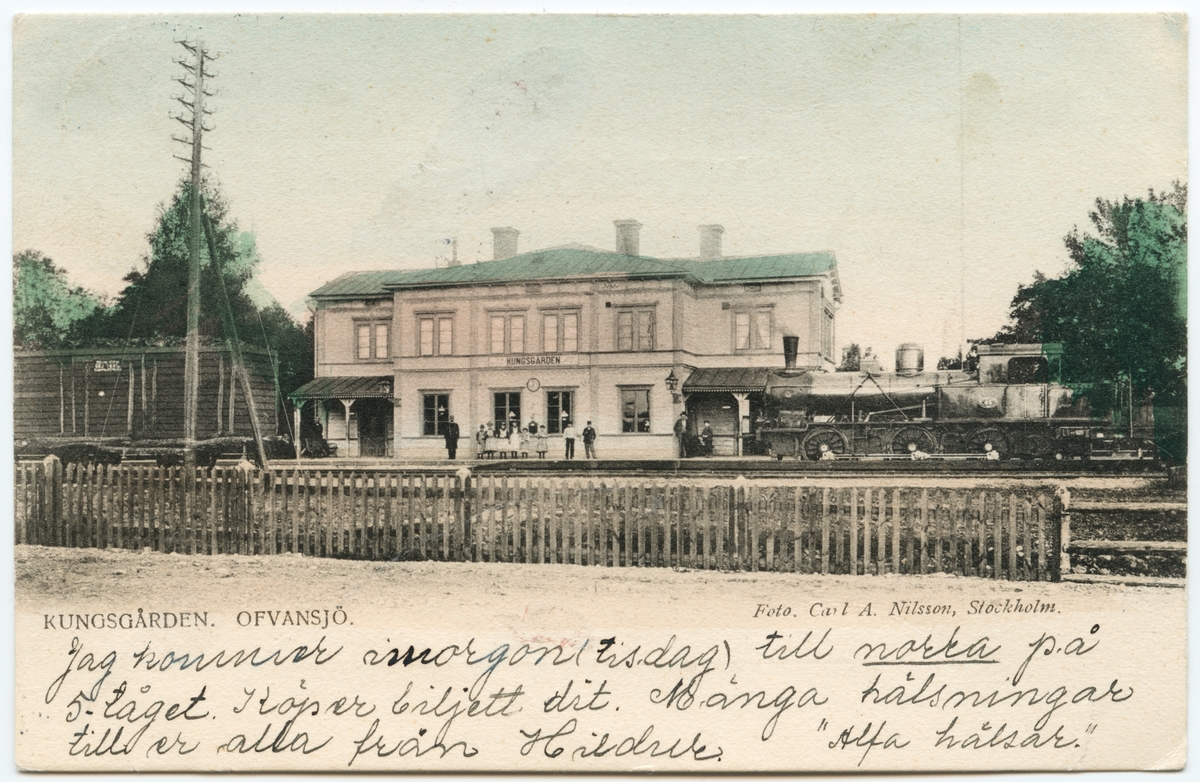 KUNGSGÅRDEN
KUNGSGÅRDEN. OFVANSJÖ.
Foto. Carl A. Nilsson, Stockholm.
Jag kommer imorgon (tisdag) till norra på
5-tåget. Köper biljett dit. Många hälsningar
till er alla från Hildur.
"Alfa hälsar."